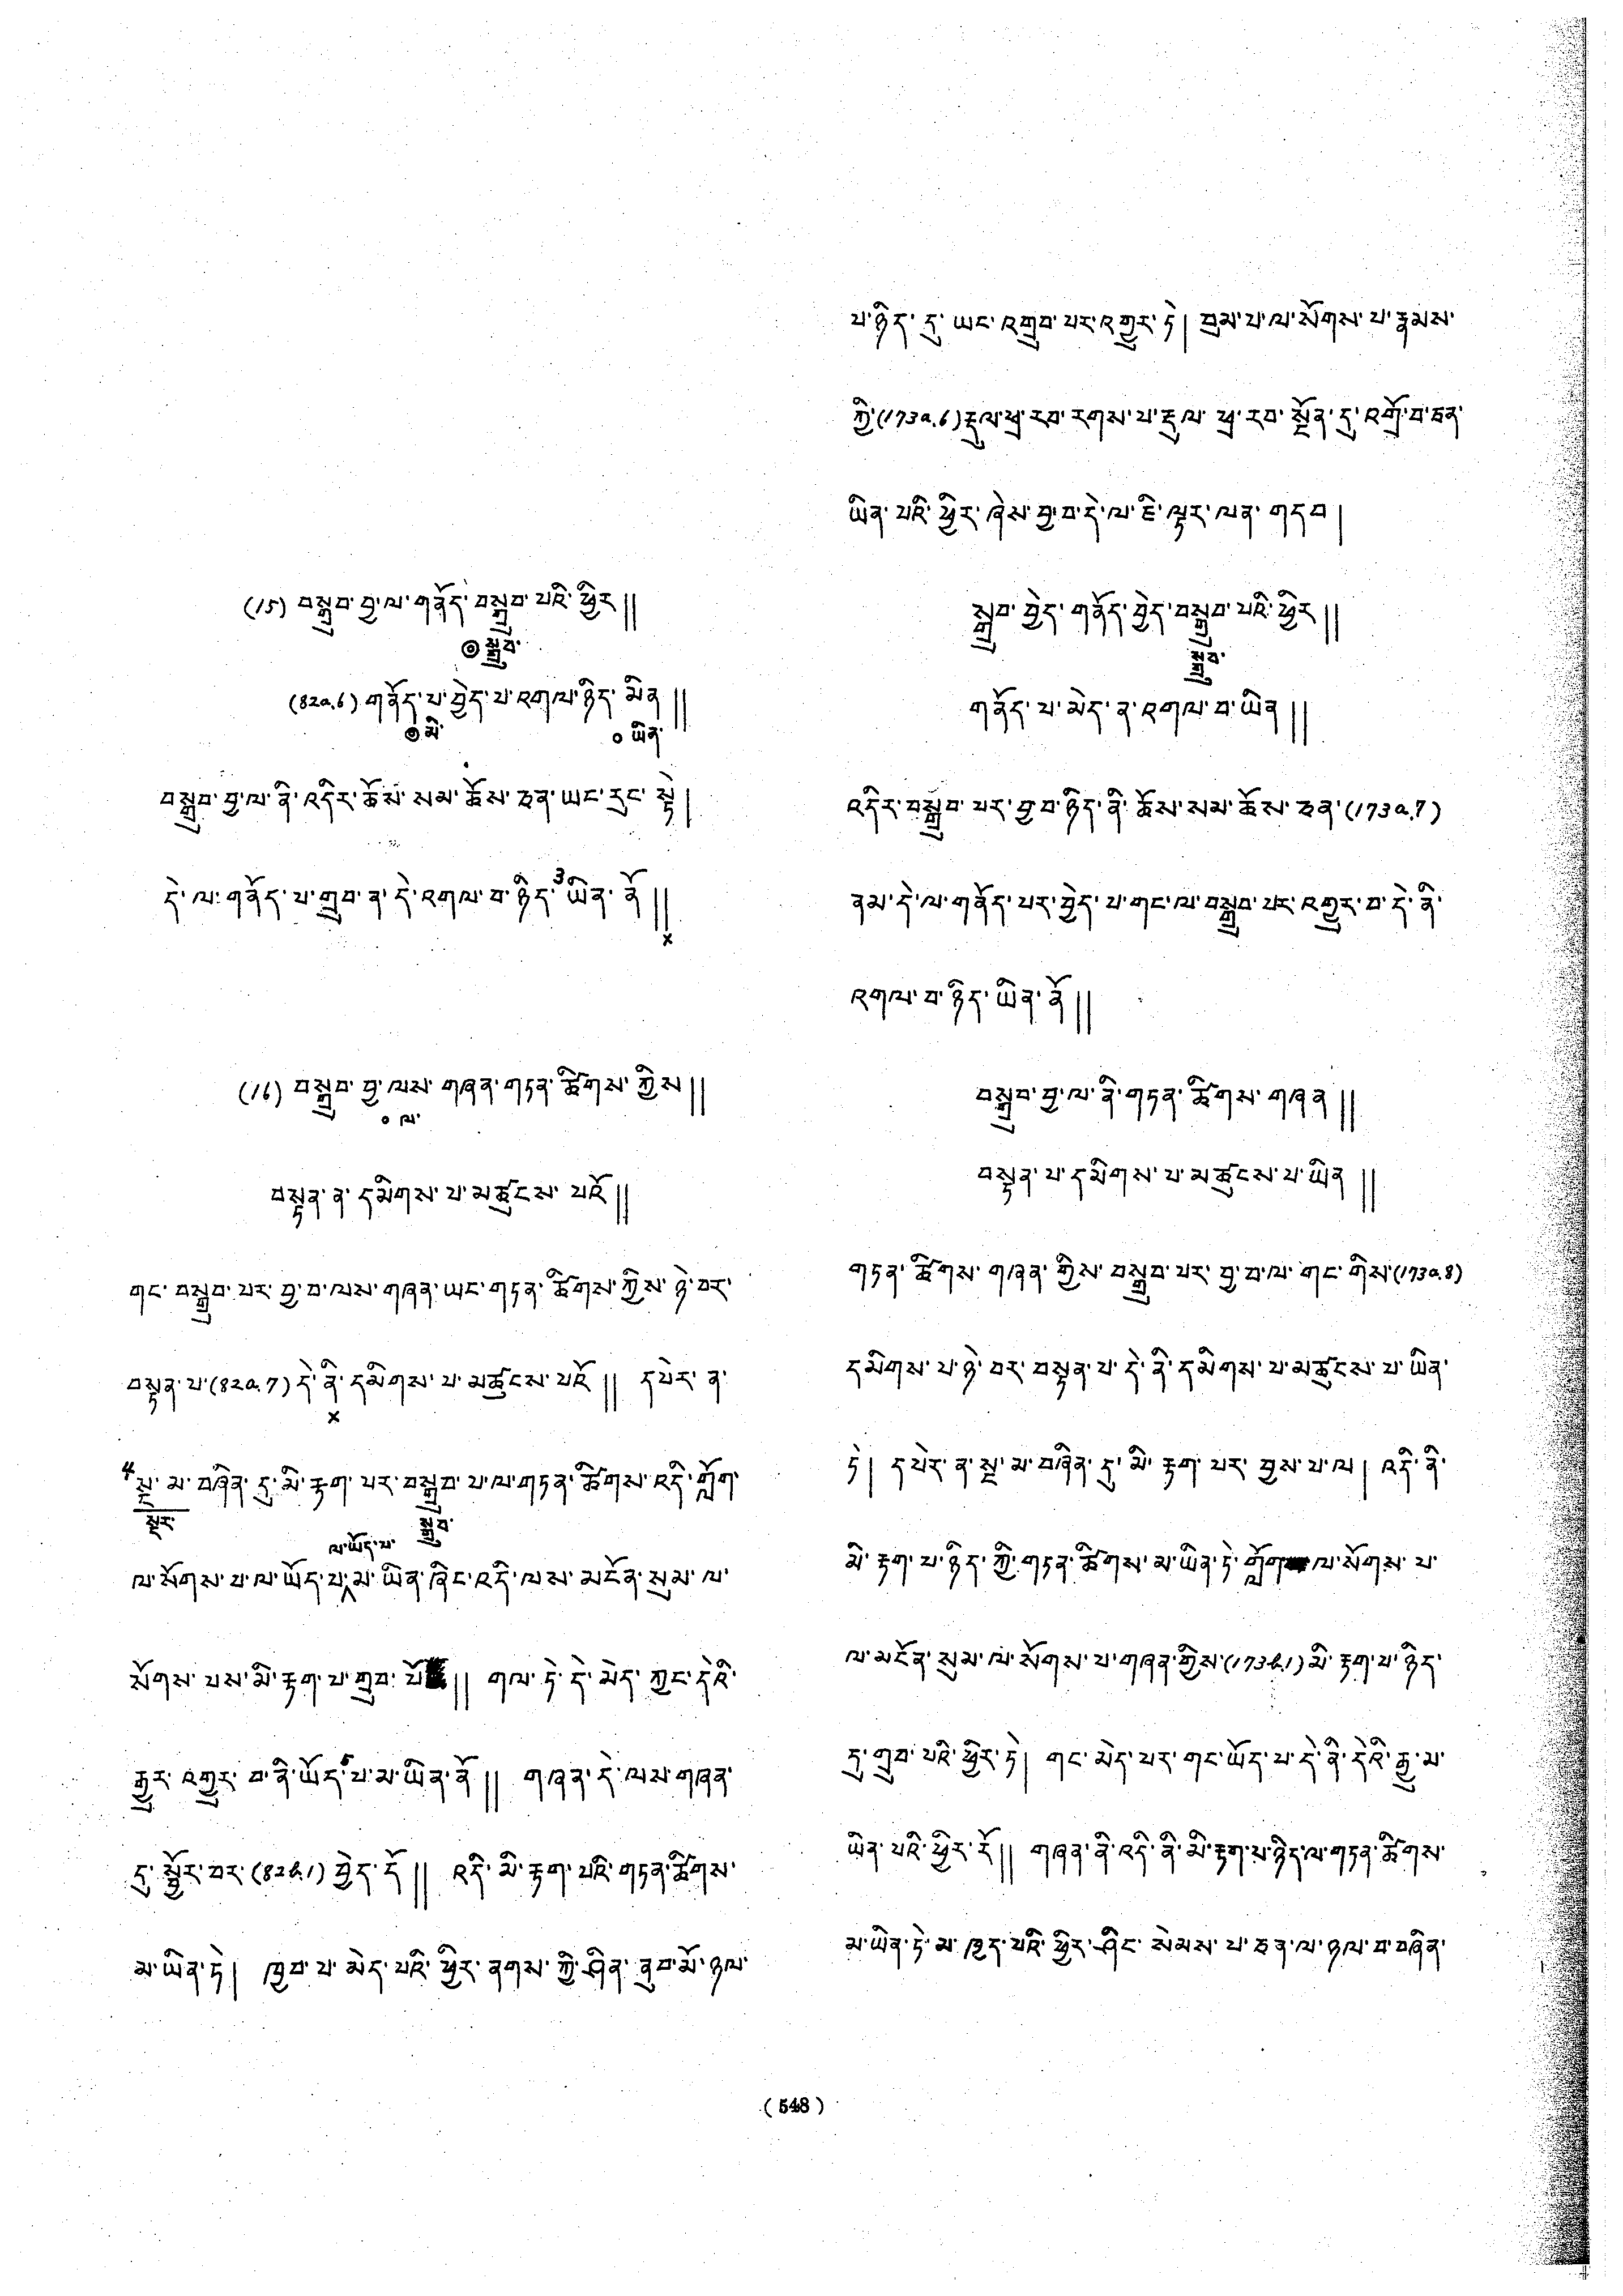 (15) བསྒྲུབ་བྱ་ལ་གནོད་བསྒྲུབ་པའི་ཕྱིར༎
◎ སྒྲུབ་
(82a.6) གནོད་པ་བྱེད་པ་འགལ་ཉིད་མིན༎
◎ མི་ ○ ཡིན་
བསྒྲུབ་བྱ་ལ་ནི་འདིར་ཆོས་སམ་ཆོས་ཅན་ཡང་རུང་སྟེ།
དེ་ལ་གནོད་པ་གྲུབ་ན་དེ་འགལ་བ་ཉིད་3ཡིན་ནོ༎
×
(16) བསྒྲུབ་བྱ་ལས་གཞན་གཏན་ཚིགས་ཀྱིས༎
○ ལ་
བསྟན་ན་དམིགས་པ་མཚུངས་པའོ༎
གང་བསྒྲུབ་པར་བྱ་བ་ལས་གཞན་ཡང་གཏན་ཚིགས་ཀྱིས་ཉེ་བར་
བསྟན་པ་(82a.7) དེ་ནི་དམིགས་པ་མཚུངས་པའོ༎ དཔེར་ན་
×
4སྔ་མ་བཞིན་དུ་མི་རྟག་པར་བསྒྲུབ་པ་ལ་གཏན་ཚིགས་འདི་གློག་
སྔར་ སྒྲུབ་
ལ་ཡོད་པ་
ལ་སོགས་པ་ལ་ཡོད་པ་མ་ཡིན་ཞིང་འདི་ལས་མངོན་སུམ་ལ་
སོགས་པས་མི་རྟག་པ་གྲུབ་པོ༎ གལ་ཏེ་དེ་མེད་ཀྱང་དེའི་
རྒྱུར་འགྱུར་བ་ནི་ཡོད་པ་མ་ཡིན་ནོ༎ གཞན་དེ་ལས་གཞན་
དུ་སྦྱོར་བར་(82b.1) བྱེད་དོ༎ འདི་མི་རྟག་པའི་གཏན་ཚིགས་
མ་ཡིན་ཏེ། ཁྱབ་པ་མེད་པའི་ཕྱིར་ནགས་ཀྱི་ཤིན་ནུབ་མོ་ཉལ་
པ་ཉིད་དུ་ཡང་འགྲུབ་པར་འགྱུར་ཏེ། བུམ་པ་ལ་སོགས་པ་རྣམས་
ཀྱི་(173a.6) རྡུལ་ཕྲ་རབ་རགས་པ་རྡུལ་ཕྲ་རབ་སྔོན་དུ་འགྲོ་བ་ཅན་
ཡིན་པའི་ཕྱིར་ཞེས་བྱ་བ་དེ་ལ་ཇི་ལྟར་ལན་གདབ།
སྒྲུབ་བྱེད་གནོད་བྱེད་བསྒྲུབ་པའི་ཕྱིར༎
སྒྲུབ་
གནོད་པ་མེད་ན་འགལ་བ་ཡིན༎
འདིར་བསྒྲུབ་པར་བྱ་བ་ཉིད་ནི་ཆོས་སམ་ཆོས་ཅན་(173a.7)
ནམ་དེ་ལ་གནོད་པར་བྱེད་པ་གང་ལ་བསྒྲུབ་པར་འགྱུར་བ་དེ་ནི་
འགལ་བ་ཉིད་ཡིན་ནོ༎
བསྒྲུབ་བྱ་ལ་ནི་གཏན་ཚིགས་གཞན༎
བསྟན་པ་དམིགས་པ་མཚུངས་པ་ཡིན༎
གཏན་ཚིགས་གཞན་གྱིས་བསྒྲུབ་པར་བྱ་བ་ལ་གང་གིས་(173a.8)
དམིགས་པ་ཉེ་བར་བསྟན་པ་དེ་ནི་དམིགས་པ་མཚུངས་པ་ཡིན་
ཏེ། དཔེར་ན་སྔ་མ་བཞིན་དུ་མི་རྟག་པར་བྱས་པ་ལ། འདི་ནི་
མི་རྟག་པ་ཉིད་ཀྱི་གཏན་ཚིགས་མ་ཡིན་ཏེ་གློག་ལ་སོགས་པ་
ལ་མངོན་སུམ་ལ་སོགས་པ་གཞན་གྱིས་(173b.1) མི་རྟག་པ་ཉིད་
དུ་གྲུབ་པའི་ཕྱིར་ཏེ། གང་མེད་པར་གང་ཡོད་པ་དེ་ནི་དེའི་རྒྱུ་མ་
ཡིན་པའི་ཕྱིར་རོ༎ གཞན་ནི་འདི་ནི་མི་རྟག་པ་ཉིད་ལ་གཏན་ཚིགས་
མ་ཡིན་ཏེ་མ་ཁྱད་པའི་ཕྱིར་ཤིང་སེམས་པ་ཅན་ལ་ཉལ་བ་བཞིན་
(548)